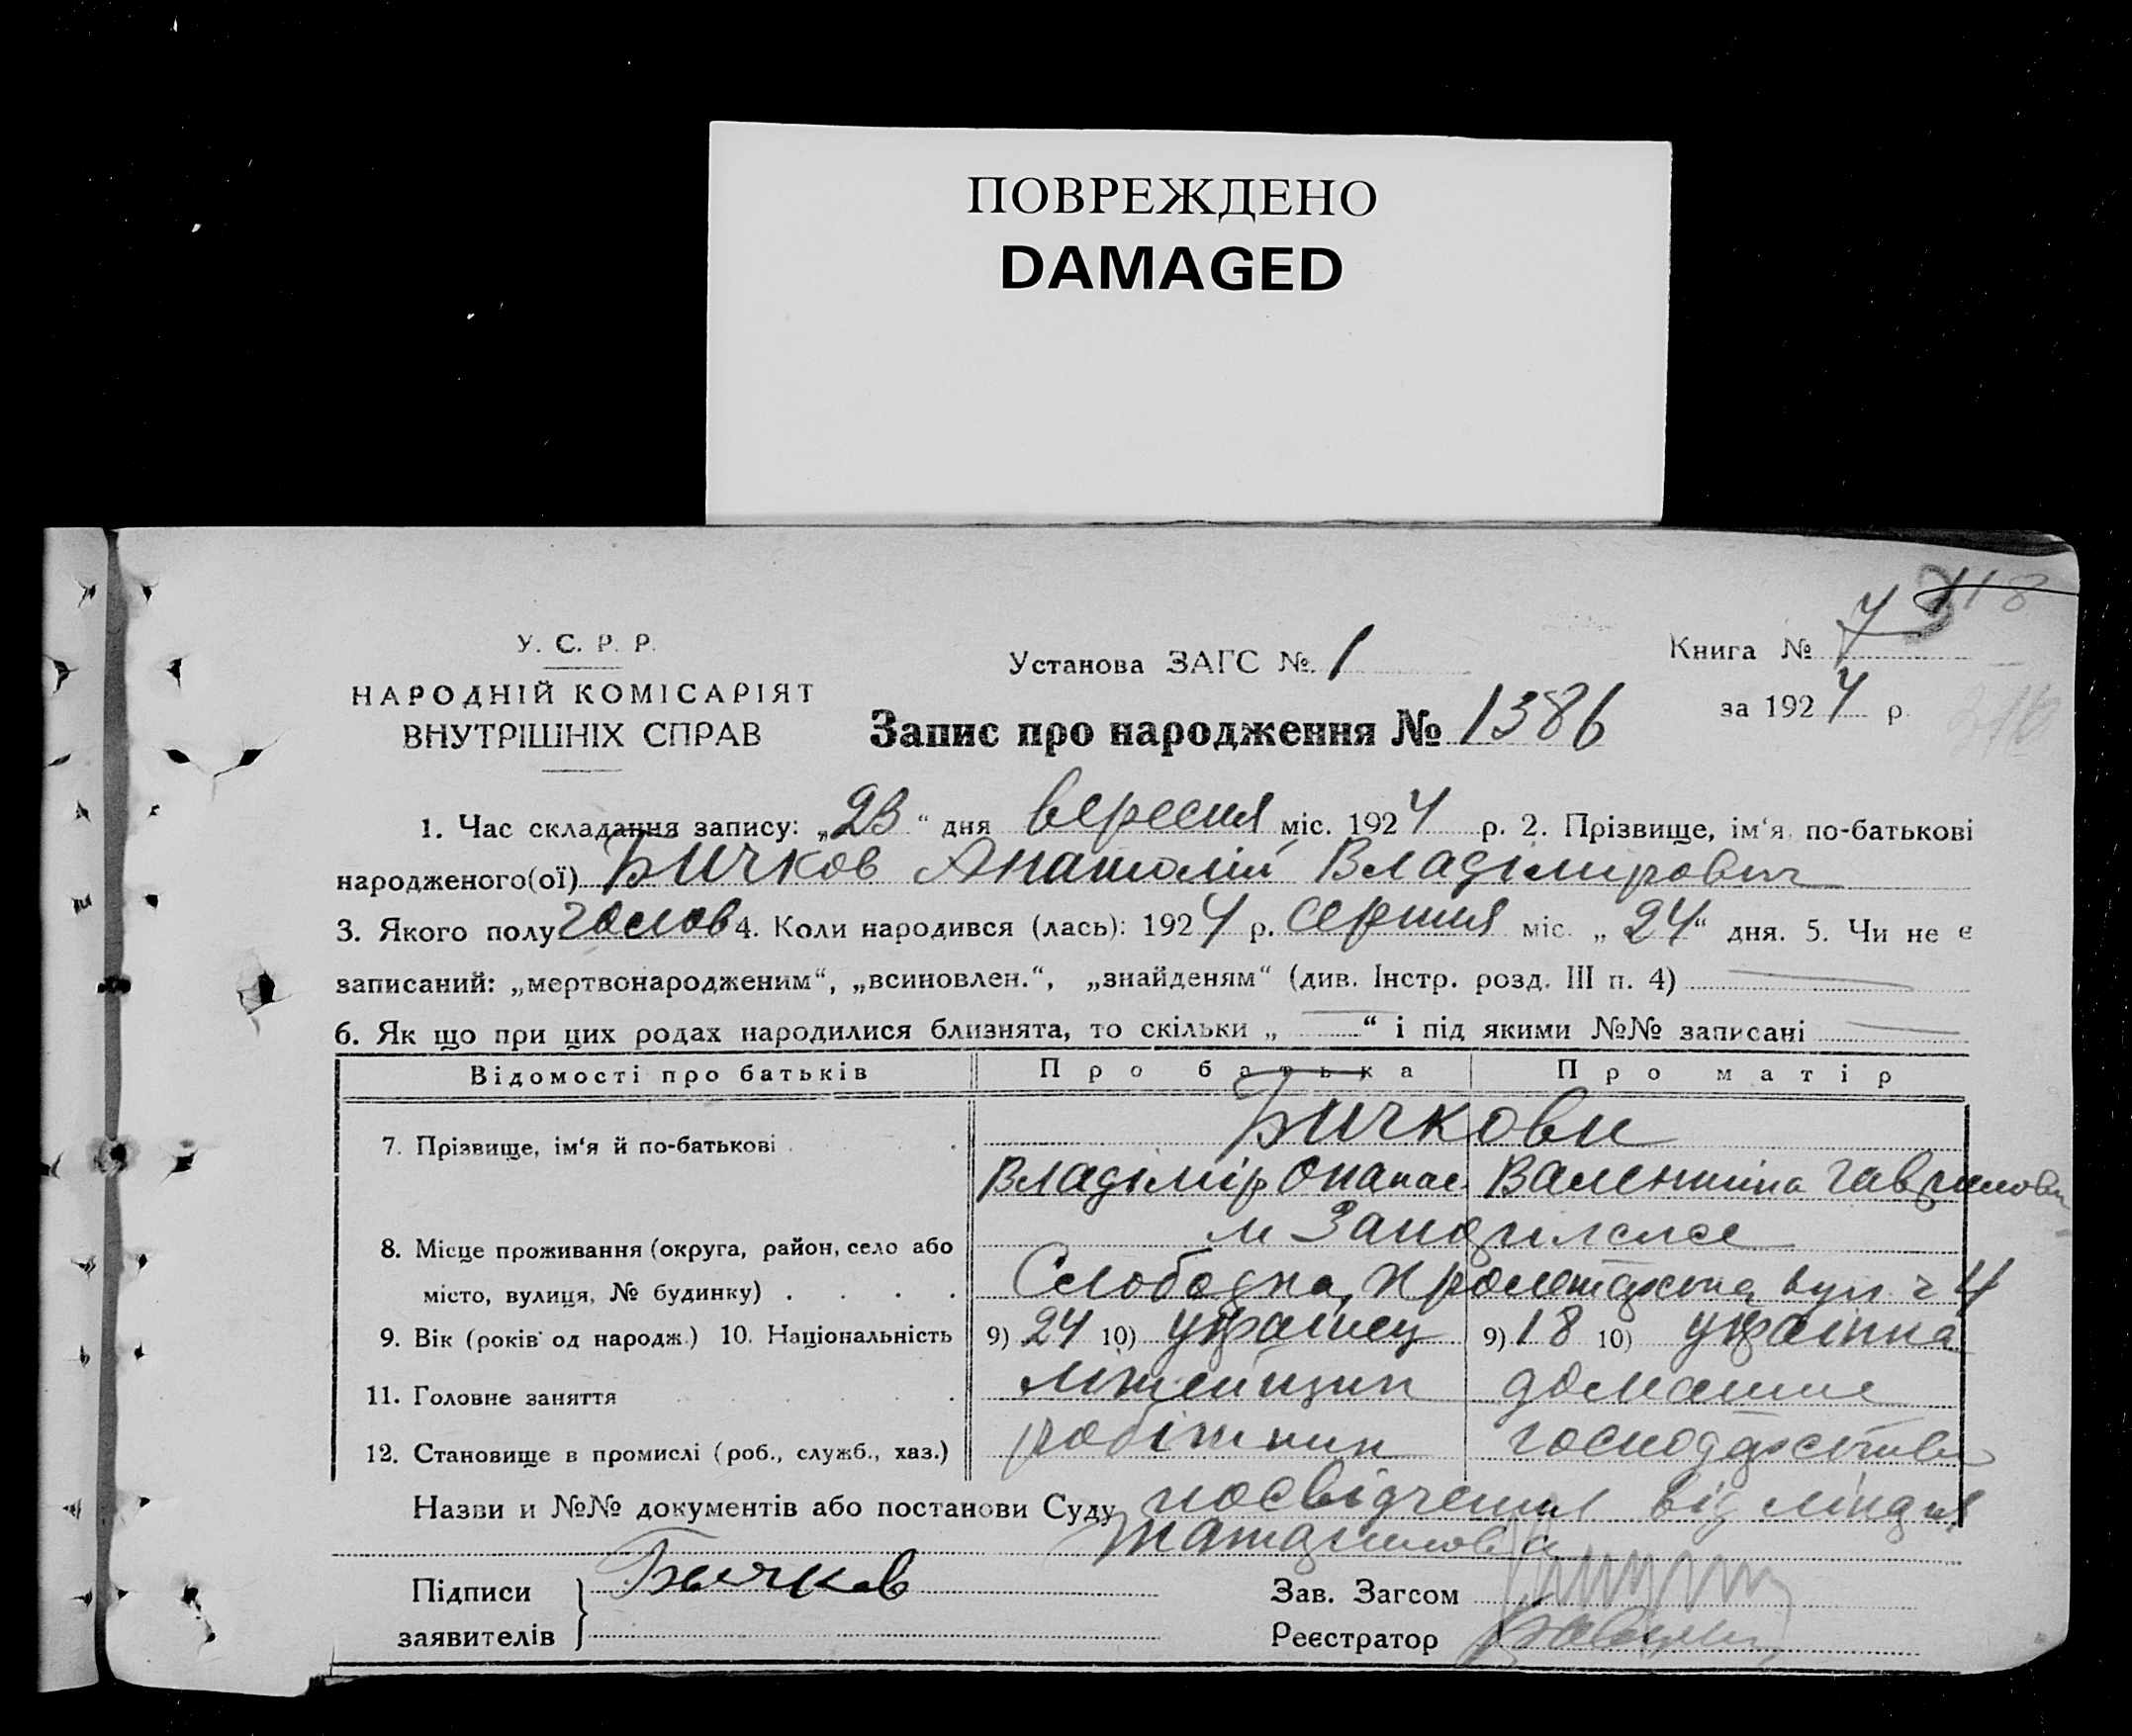 ПОВРЕЖДЕНО
DAMAGED
118
У. С. Р. Р.
НАРОДНІЙ КОМІСАРІЯТ
ВНУТРІШНІХ СПРАВ
Установа ЗАГС № 1
Книга № 7
за 1924 р.
Запис про народження № 1386
1. Час складання запису: „23“ дня вересня міс. 1924 р. 2. Прізвище, ім‘я по-батькові
народженого(ої) Бичков Анатолій Владімірович
3. Якого полу чолов 4. Коли народився (лась): 1924 р. серпня міс. „24“ дня. 5. Чи не є
записаний: „мертвонародженим“, „всиновлен.“, „знайденям“ (див. Інстр. розд. III п. 4)
6. Як що при цих родах народилися близнята, то скільки „ “ і під якими №№ записані
Відомості про батьків Про батька Про матір
7. Прізвище, ім‘я й по-батькові Бичкови
Владімір Опанас. Валентина Гавриловн
8. Місце проживання (округа, район, село або м
місто, вулиця, № будинку) Слободка, Пролетарська вул. ч 4
9. Вік (років од народж.) 10. Національність 9) 24 10) українец 9) 18 10) українка
11. Головне заняття домашнє
12. Становище в промислі (роб., служб., хаз.) робітник господарство
Назви и №№ документів або постанови Суду посвідчення від
Підписи заявителів Бычков
Зав. Загсом
Реєстратор